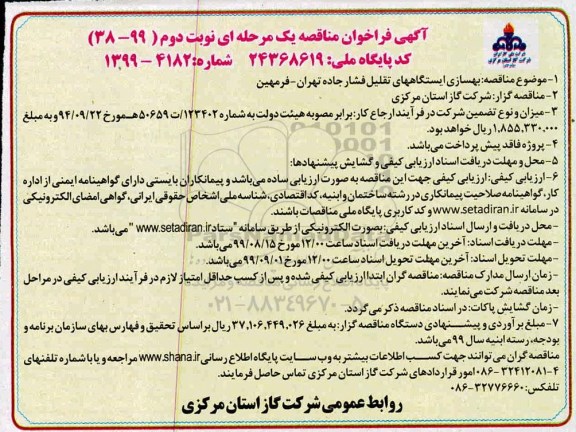 آگهی فراخوان مناقصه یک مرحله ای نوبت دوم ( ۹۹- ۳۸)
کد پایگاه ملی: ۲۴۳۶۸۶۱۹ شماره: ۴۱۸۲ – ۱۳۹۹
شرکت ملی گاز ایران
شرکت گاز استان مرکزی
۱-موضوع مناقصه:بهسازی ایستگاههای تقلیل فشار جاده تهران-فرمهین
۲-مناقصه گزار: شرکت گاز استان مرکزی
۳-میزان و نوع تضمین شرکت در فرآیند ارجاع کار: برابر مصوبه هیئت دولت به شماره ۱۲۳۴۰۲/ت ۵۰۶۵۹هـ مورخ ۹۴/۰۹/۲۲ و به مبلغ
۱,۸۵۵,۳۳۰,۰۰۰ ریال خواهد بود.
۴- پروژه فاقد پیش پرداخت می‌باشد.
۵-محل و مهلت دریافت اسناد ارزیابی کیفی و گشایش پیشنهادها:
۶-ارزیابی کیفی: ارزیابی کیفی جهت این مناقصه به صورت ارزیابی ساده می‌باشد و پیمانکاران بایستی دارای گواهینامه ایمنی از اداره
کار، گواهینامه صلاحیت پیمانکاری در رشته ساختمان و ابنیه، کد اقتصادی، شناسه ملی اشخاص حقوقی ایرانی، گواهی امضای الکترونیکی
در سامانه www.setadiran.ir و کد کاربری پایگاه ملی مناقصات باشند.
-محل دریافت و ارسال اسناد ارزیابی کیفی: بصورت الکترونیکی از طریق سامانه "ستاد www.setadiran.ir" می‌باشد.
-مهلت دریافت اسناد: آخرین مهلت دریافت اسناد ساعت ۱۲/۰۰ مورخ ۹۹/۰۸/۱۵ می‌باشد.
-مهلت تحویل اسناد: آخرین مهلت تحویل اسناد ساعت ۱۲/۰۰ مورخ ۹۹/۰۹/۰۱ می‌باشد.
-زمان ارسال مدارک مناقصه: مناقصه گران ابتدا ارزیابی کیفی شده و پس از کسب حداقل امتیاز لازم در فرآیند ارزیابی کیفی در مراحل
بعد مناقصه شرکت می‌نمایند.
-زمان گشایش پاکات: در اسناد مناقصه ذکر می گردد.
۷-مبلغ برآوردی و پیشنهادی دستگاه مناقصه گزار: به مبلغ ۳۷,۱۰۶,۴۴۹,۰۲۶ ریال براساس تحقیق و فهارس بهای سازمان برنامه و
بودجه، رسته ابنیه سال ۹۹ می‌باشد.
مناقصه گران می‌توانند جهت کسب اطلاعات بیشتر به وب سایت پایگاه اطلاع رسانی www.shana.ir مراجعه و یا با شماره تلفنهای
۴-۳۲۴۱۲۰۸۱-۰۸۶ امور قراردادهای شرکت گاز استان مرکزی تماس حاصل فرمایند.
تلفکس: ۳۲۷۷۶۶۶۰-۰۸۶
روابط عمومی شرکت گاز استان مرکزی
۰۲۱-۸۸۳۴۹۶۷۰-۵